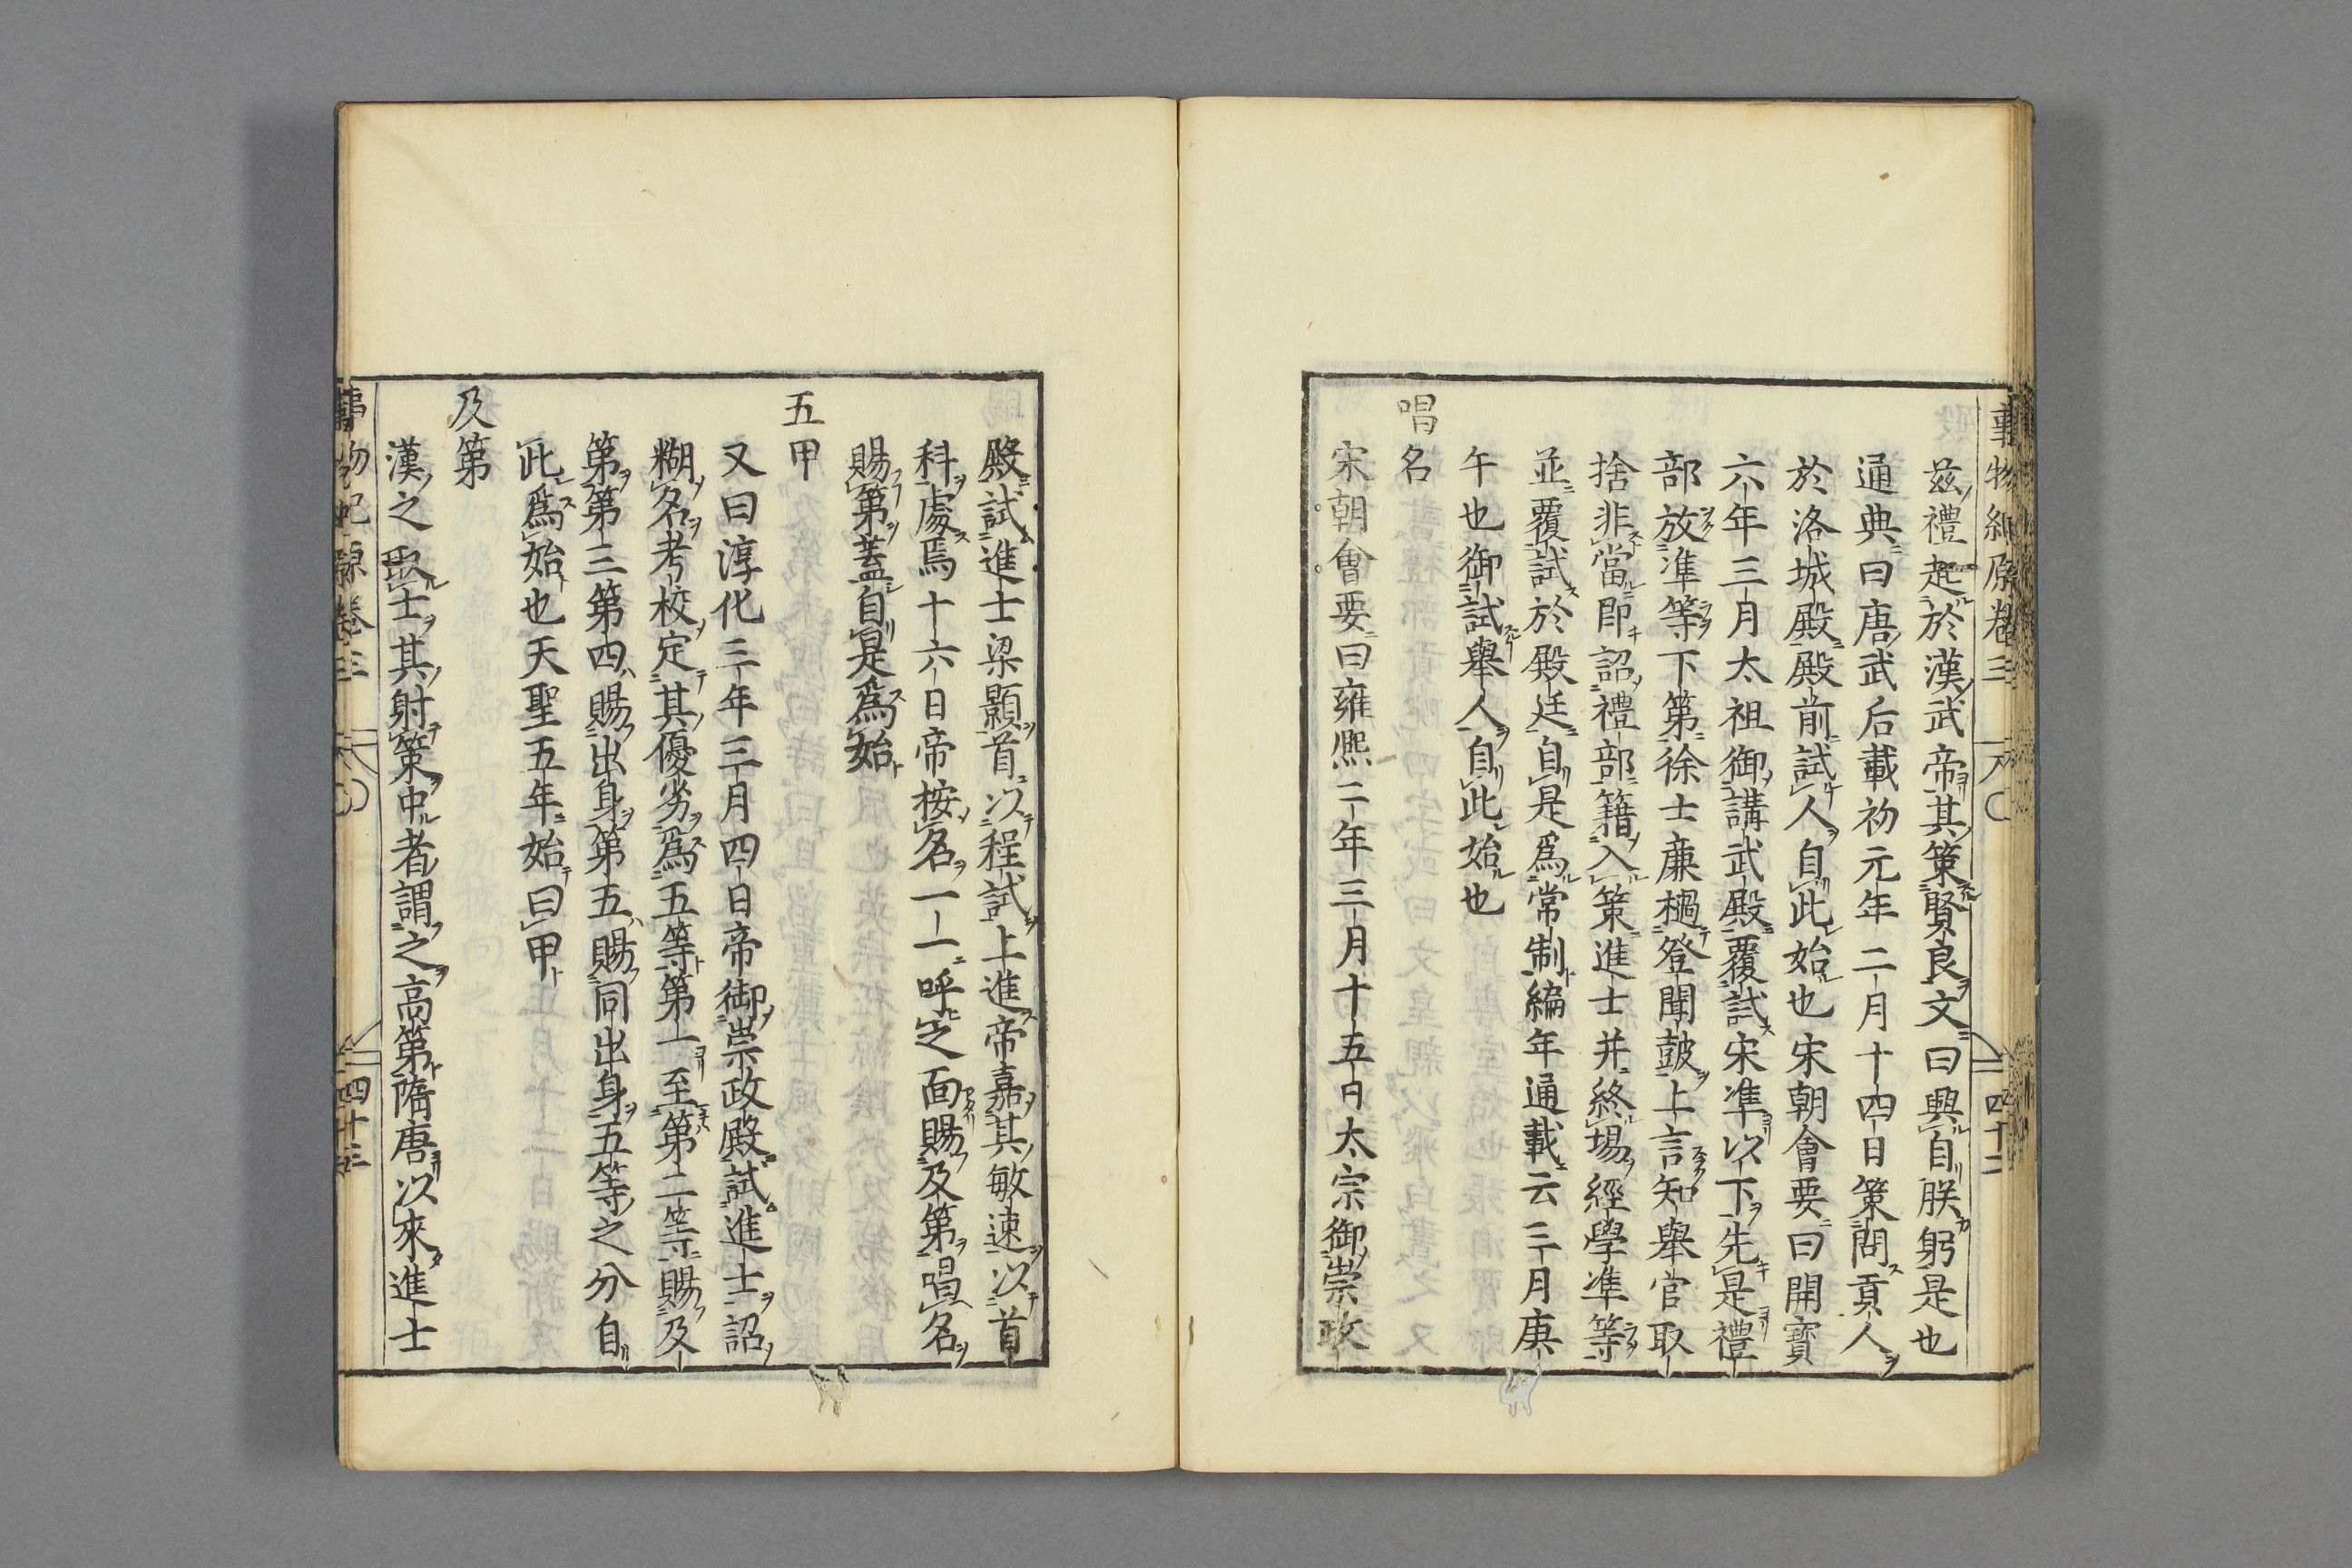 事物紀原卷三
四十二
茲禮起於漢武帝其策賢良文曰興自朕躬是也
通典曰唐武后載初元年二月十四日策問貢人
於洛城殿殿前試人自此始也宋朝會要曰開寶
六年三月太祖御講武殿覆試宋準以下先是禮
部放準等下第徐士廉檛登聞鼓上言知舉官取
捨非當即詔禮部籍入策進士并終場經學準等
並覆試於殿廷自是爲常制編年通載云三月庚
午也御試舉人自此始也
唱名
宋朝會要曰雍熙二年三月十五日太宗御崇政
殿試進士梁顥首以程試上進帝嘉其敏速以首
科處焉十六日帝按名一一呼之面賜及第唱名
賜第蓋自是爲始
五甲
又曰淳化三年三月四日帝御崇政殿試進士詔
糊名考校定其優劣爲五等第一至第二等賜及
第第三第四賜出身第五賜同出身五等之分自
此爲始也天聖五年始曰甲
及第
漢之取士其射策中者謂之高第隋唐以來進士
事物紀原卷三
四十三